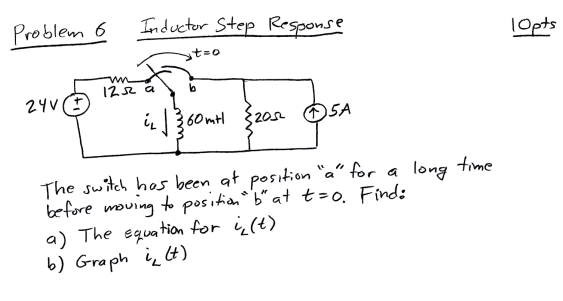 Problem 6 Inductor Step Response 10pts
t=0
12Ω a b
24V + - iL ↓ 60mH 20Ω ↑ 5A
The switch has been at position "a" for a long time
before moving to position "b" at t=0. Find:
a) The equation for iL(t)
b) Graph iL(t)